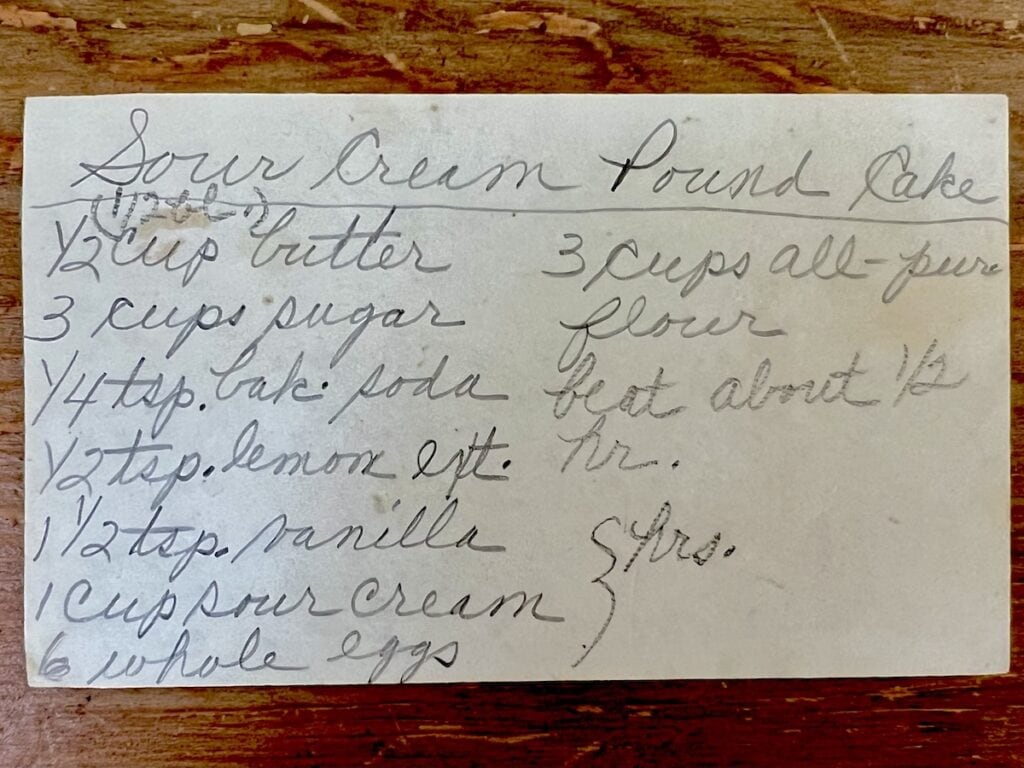 Sour Cream Pound Cake
1/2 cup butter
3 cups sugar
1/4 tsp. bak. soda
1/2 tsp. lemon ext.
1 1/2 tsp. vanilla
1 cup sour cream
6 whole eggs
3 cups all-pur.
flour
beat about 1/2
hr.
hrs.